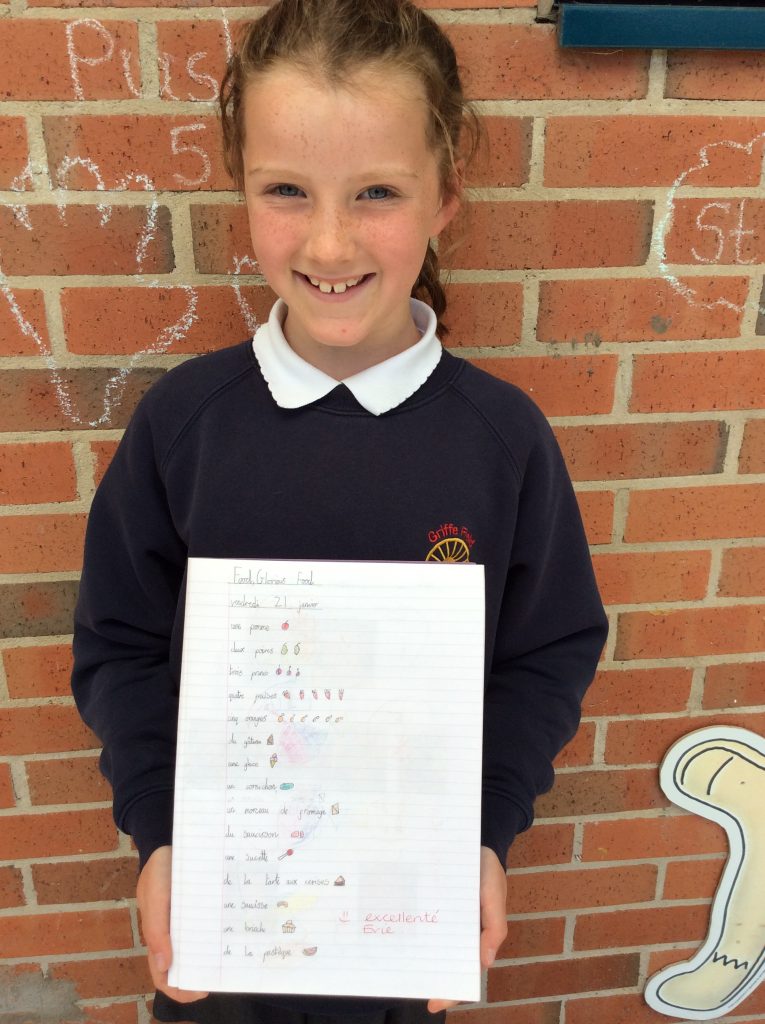 Push
5
St
Griffe Field
Food, Glorious Food
vendredi 21 junior
une pomme
deux poires
trois prunes
quatre fraises
cinq oranges
du gâteau
une glace
un cornichon
un morceau de fromage
du saucisson
une sucette
de la tarte aux cerises
une saucisse
une brioche
de la pastèque
excellenté
Evie